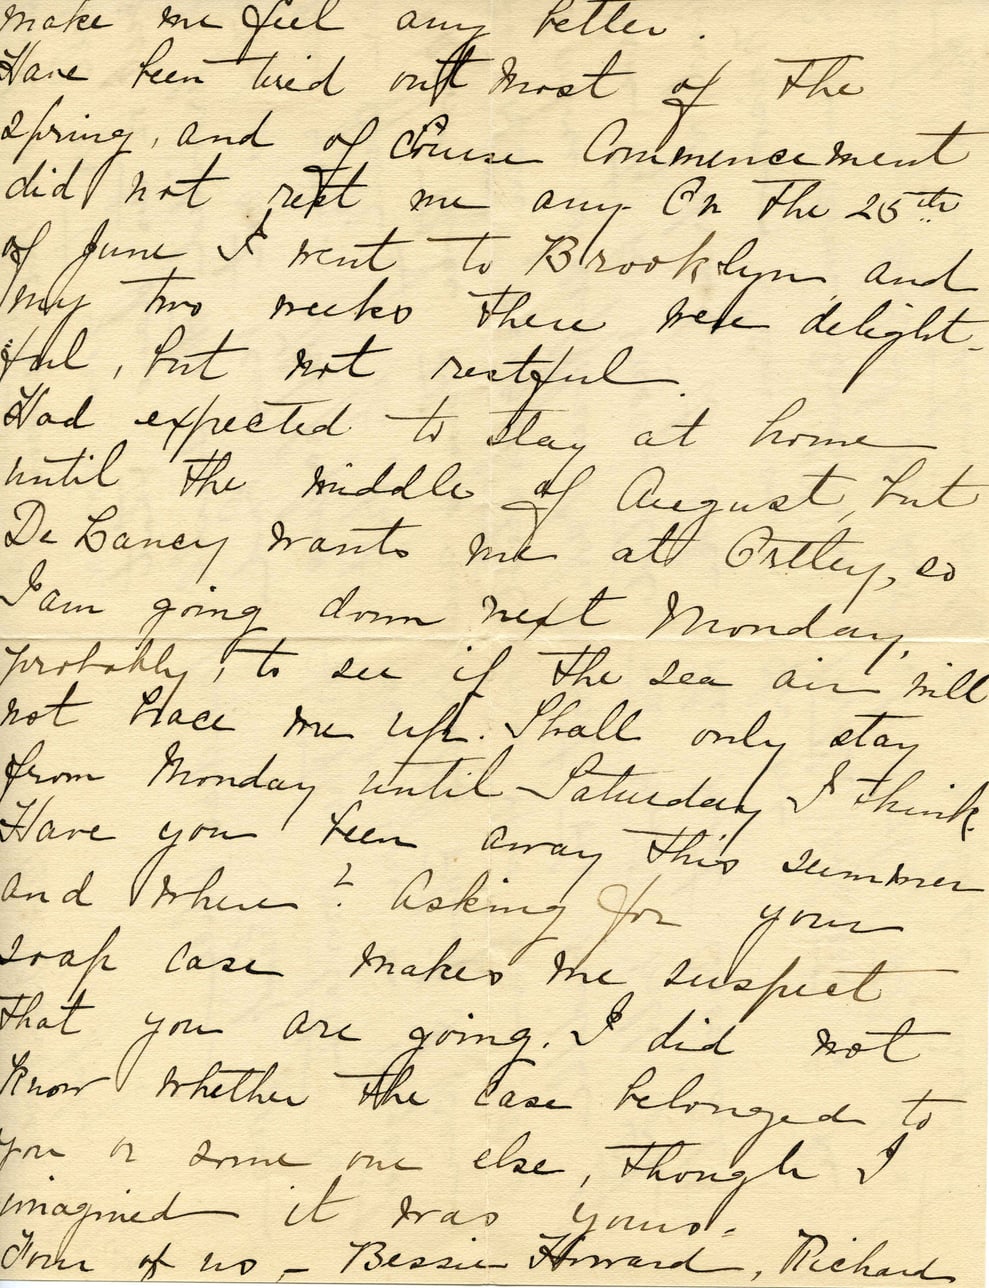 make me feel any better.
Have been tired out most of the
spring, and of course Commencement
did not rest me any. On the 25th
of June I went to Brooklyn, and
my two weeks there were delight-
ful, but not restful.
Had expected to stay at home
until the middle of August, but
De Lancey wants me at Ortley, so
I am going down next Monday,
probably, to see if the sea air will
not brace me up. Shall only stay
from Monday until Saturday I think.
Have you been away this summer
and where? Asking for your
soap case makes me suspect
that you are going. I did not
know whether the case belonged to
you or some one else, though I
imagined it was yours.
Four of us – Bessie Howard, Richard